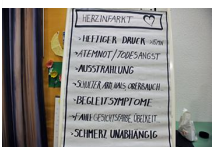 HERZINFARKT
• HEFTIGER DRUCK
• ATEMNOT/TODESANGST
• AUSSTRAHLUNG
SCHULTER ARM HALS OBERBAUCH
• BEGLEITSYMPTOME
FAHLE GESICHTSFARBE, ÜBELKEIT
• SCHMERZ UNABHÄNGIG